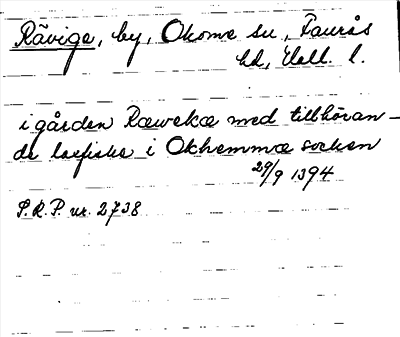 Rävige, by, Okome sn, Faurås
hd, Hall. l.
i gården Ræwekæ med tillhöran-
de laxfiske i Okhemmæ socken
29/9 1394
S.R.P. nr. 2738